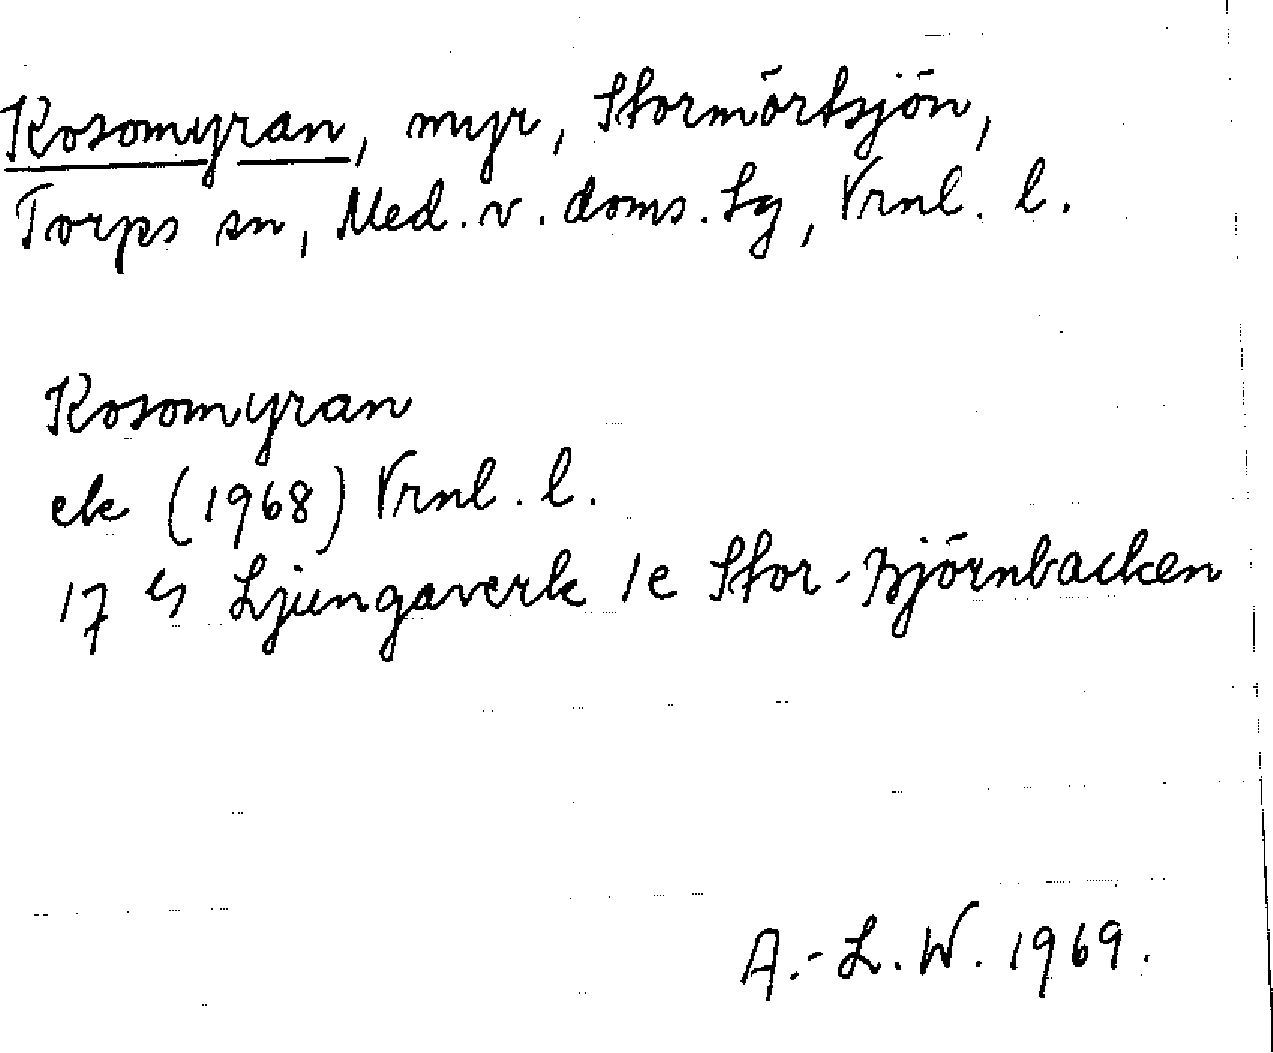 Kosomyran, myr, Stormörtsjön,
Torps sn, Med. v. doms. Lg, Vrnl. l.
Kosomyran
ek (1968) Vrnl. l.
17 G Ljungaverk 1e Stor-Björnbacken
A.-L. W. 1969.